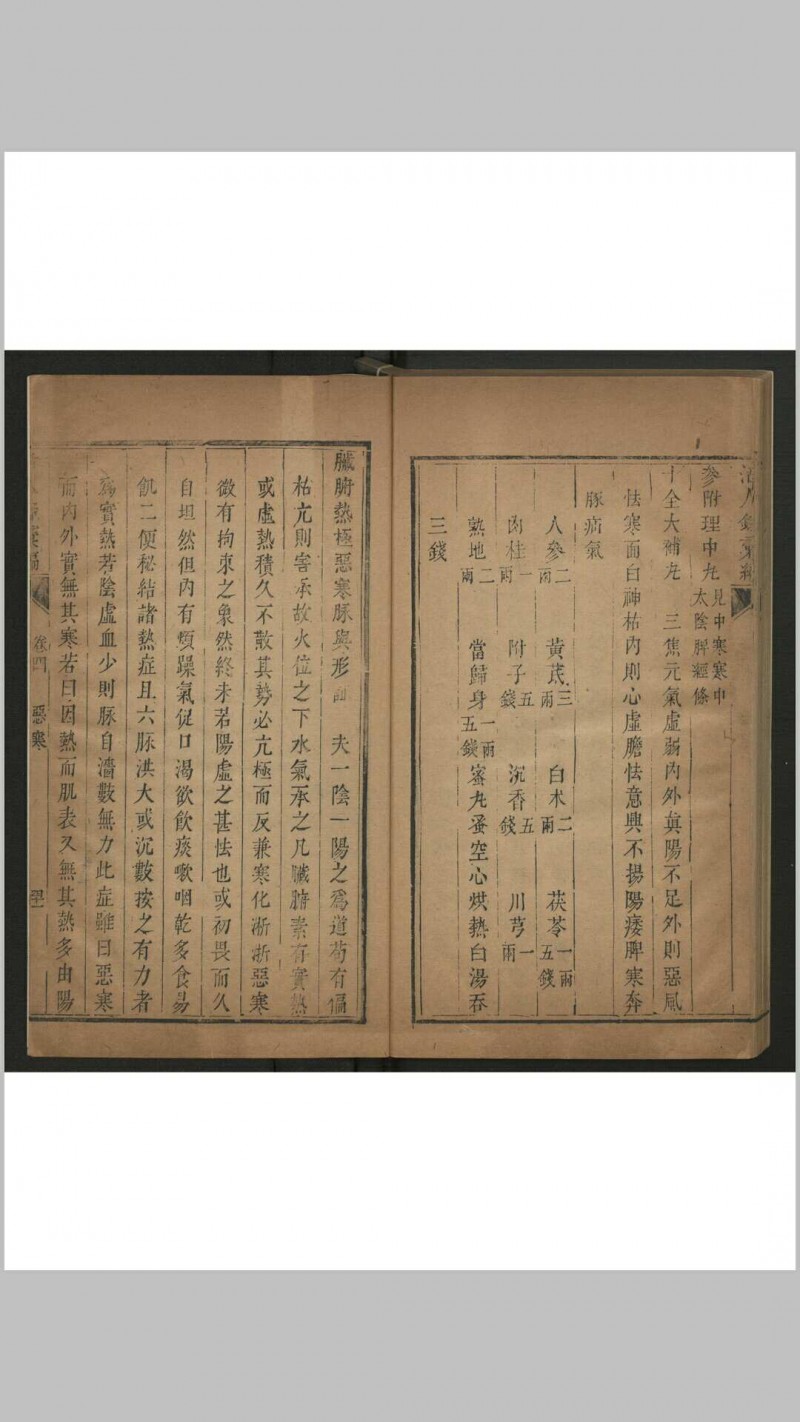 參附理中丸見中寒寒中太陰脾經條
十全大補丸　三焦元氣虛弱內外眞陽不足外則惡風
怯寒面白神枯內則心虛膽怯意興不揚陽痿脾寒奔
豚疝氣
人參二兩　黃茋三兩　白术二兩　茯苓一兩五錢
肉桂一兩　附子五錢　沉香五錢　川芎一兩
熟地二兩　當歸身一兩五錢　蜜丸蚤空心烘熱白湯吞
三錢
臟腑熱極惡寒脉與形　夫一陰一陽之爲道苟有偏
枯亢則害承故火位之下水氣承之凡臟腑素存實熱
或虛熱積久不散其勢必亢極而反兼寒化淅淅惡寒
微有拘束之象然終未若陽虛之甚怯也或初畏而久
自坦然但內有煩躁氣促口渴欲飲痰嗽咽乾多食易
飢二便秘結諸熱症且六脉洪大或沉數按之有力者
爲實熱若陰虛血少則脉自濇數無力此症雖曰惡寒
而內外實無其寒若曰因熱而肌表又無其熱多由陽
卷四　惡寒